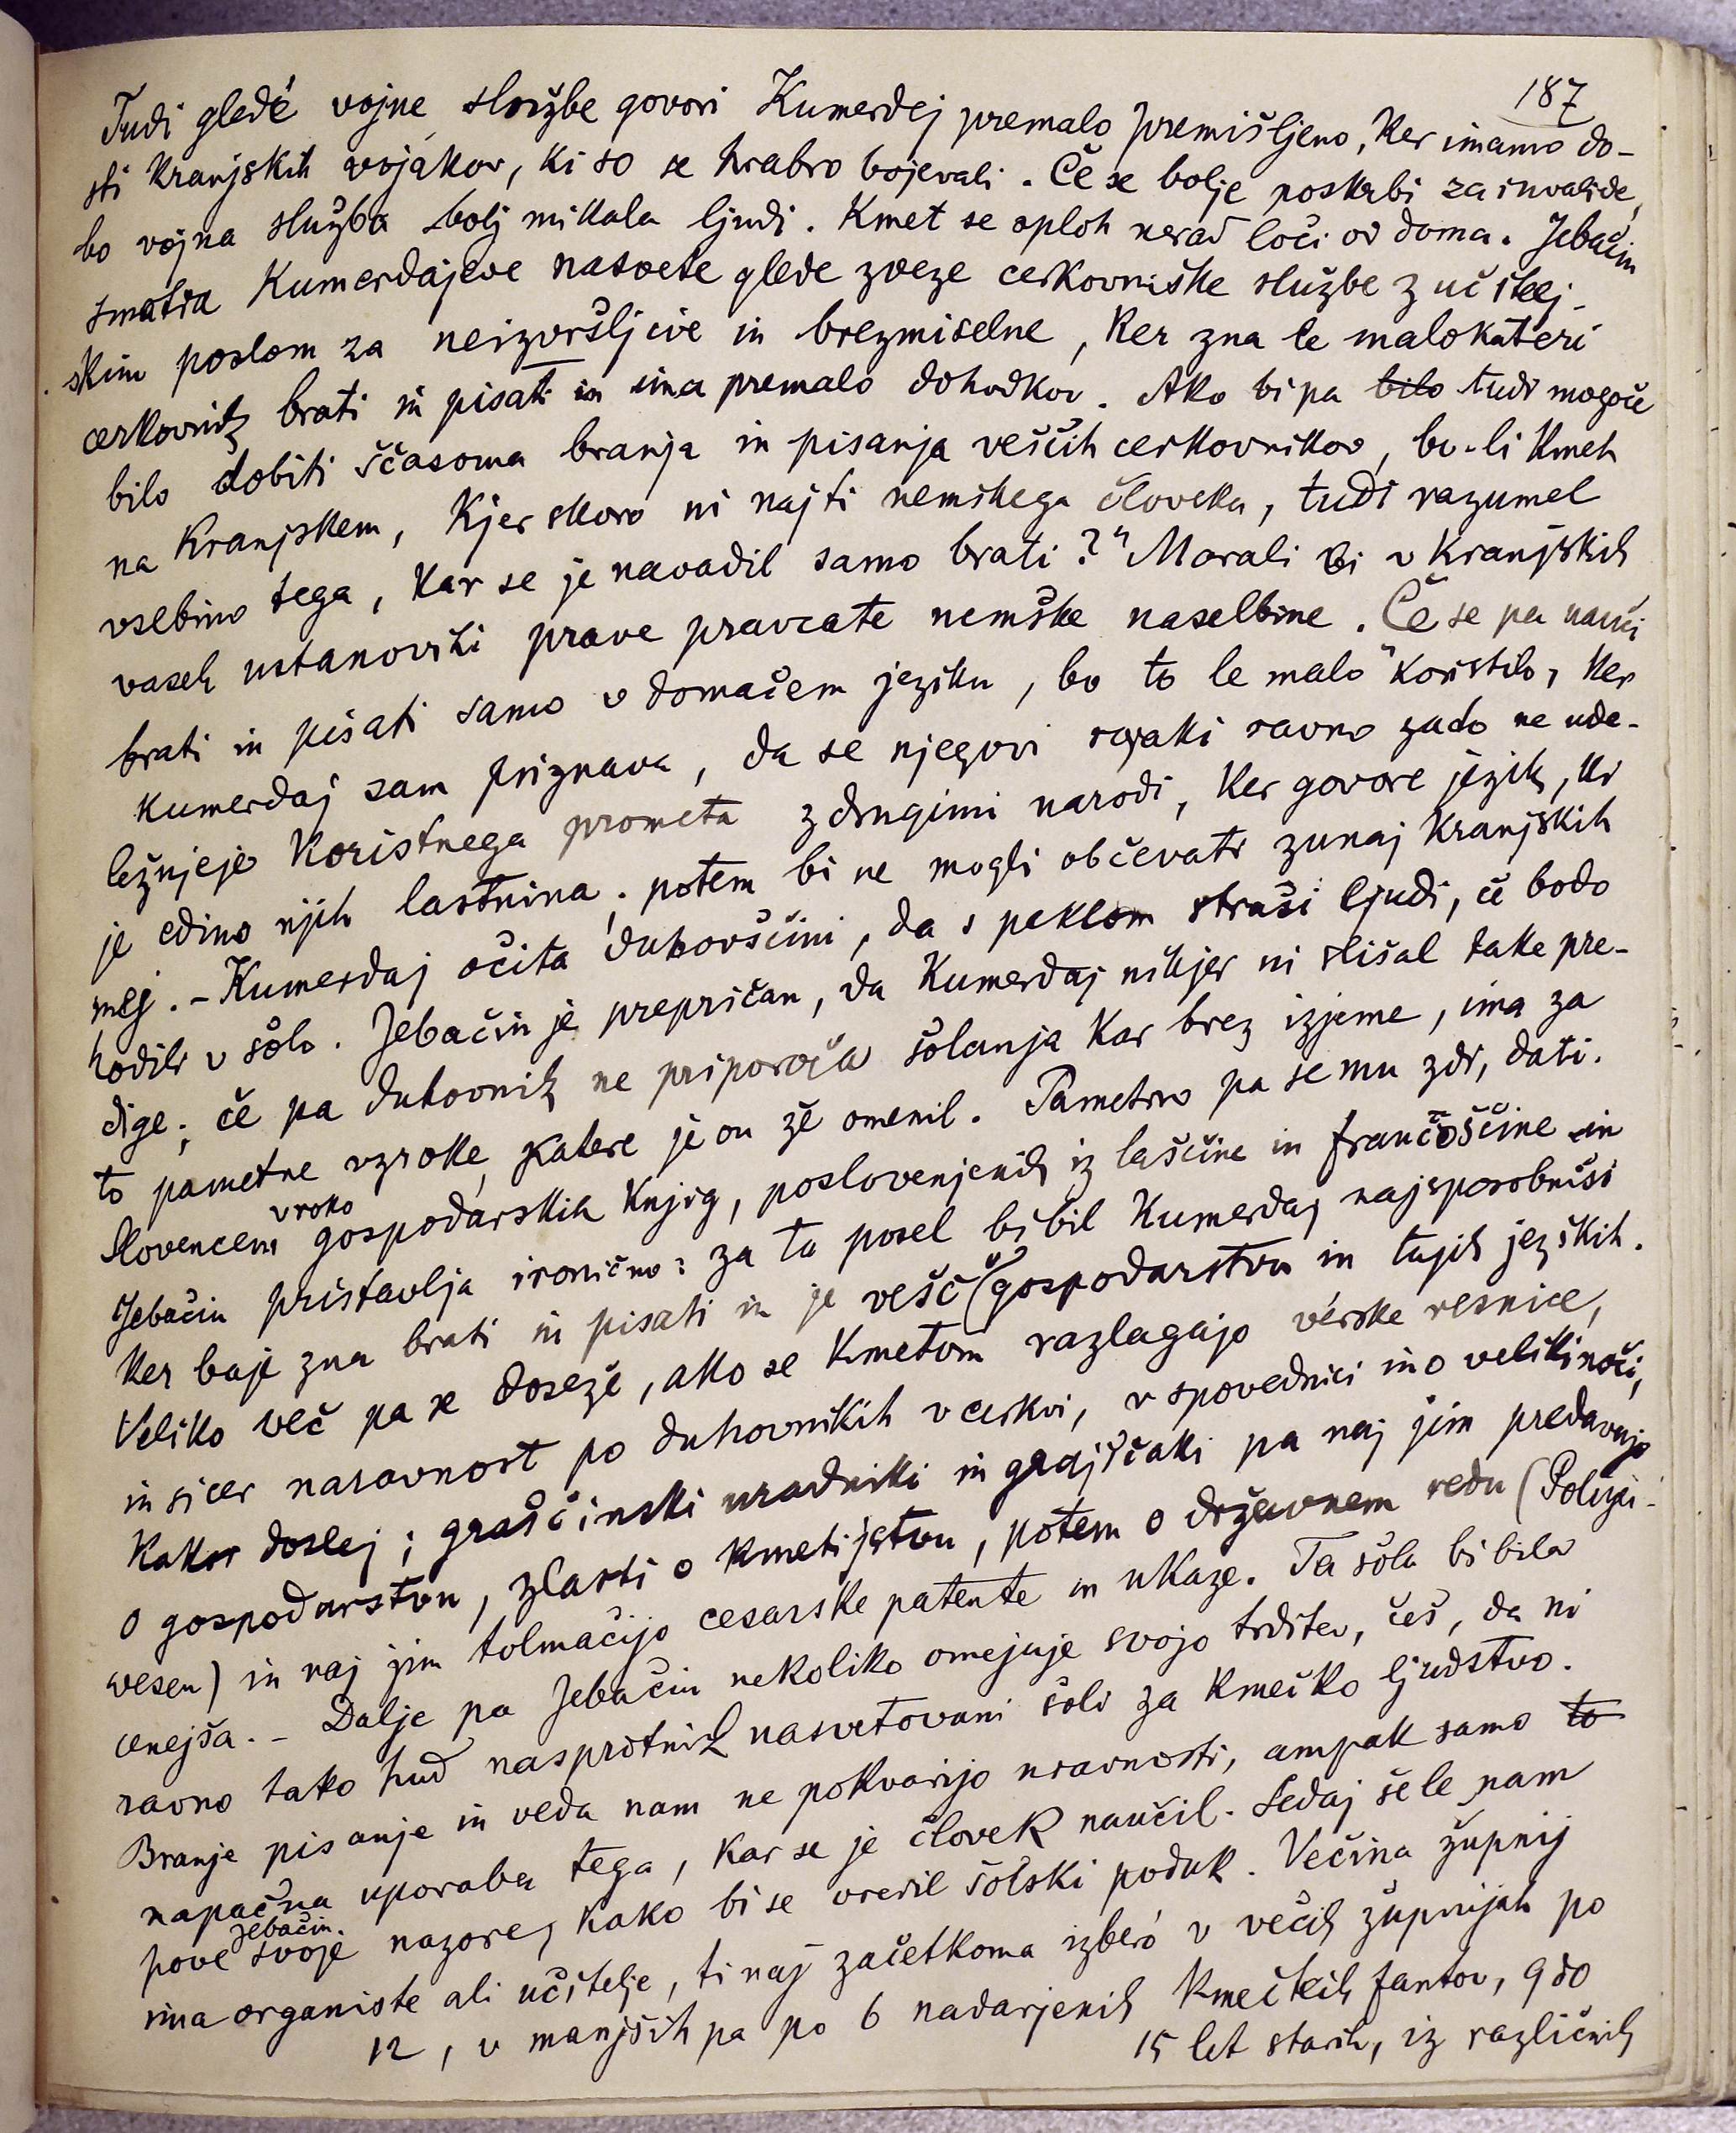 187
Tudi gledé vojne službe govori Kumerdej premalo premišljeno, ker imamo do-
sti kranjskih vojakov, ki so se hrabro bojevali. Če se bolje poskrbi za invalide,
bo vojna služba bolj mikala ljudi. Kmet se sploh nerad loči od doma. Jebačin
smatra Kumerdajeve nasvete glede zveze cerkovniške službe z učitelj-
skim poslom za neizvršljive in brezmiselne, ker zna le malokateri
cerkovnik brati in pisati in ima premalo dohodkov. Ako bi pa bilo tudi mogoče
bilo dobiti sčasoma branja in pisanja veščih cerkovnikov, bo-li kmet
na Kranjskem, kjer skoro ni najti nemškega človeka, tudi razumel
vsebino tega, kar se je navadil samo brati?" Morali bi v kranjskih
vaseh ustanoviti prave pravcate nemške naselbine. Če se pa nauči
brati in pisati samo v domačem jeziku, bo to le malo koristilo, ker
Kumerdaj sam priznava, da se njegovi rojaki ravno zato ne ude-
ležujejo koristnega prometa z drugimi narodi, ker govore jezik, ki
je edino njih lastnina; potem bi ne mogli občevati zunaj kranjskih
mej. - Kumerdaj očita duhovščini, da s peklom straši ljudi, če bodo
hodili v šolo. Jebačin je prepričan, da Kumerdaj nikjer ni slišal take pre-
dige; če pa duhovnik ne priporoča šolanja kar brez izjeme, ima za
to pametne vzroke, katere je on že omenil. Pametno pa se mu zdi, dati
Slovencem v roko gospodarskih knjig, poslovenjenih iz laščine in francoščine in
Jebačin pristavlja ironično: za ta posel bi bil Kumerdaj najsposobniši
ker baje zna brati in pisati in je vešč v gospodarstvu in tujih jezikih.
Veliko več pa se doseže, ako se kmetom razlagajo verske resnice,
in sicer naravnost po duhovnikih v cerkvi, v spovednici in o veliki noči,
kakor doslej; graščinski uradniki in grajščaki pa naj jim predavajo
o gospodarstvu, zlasti o kmetijstvu, potem o državnem redu (Polizei-
wesen) in naj jim tolmačijo cesarske patente in ukaze. Ta šola bi bila
cenejša. - Dalje pa Jebačin nekoliko omejuje svojo trditev, češ, da ni
ravno tako hud nasprotnik nasvetovani šoli za kmečko ljudstvo.
Branje pisanje in veda nam ne pokvarijo nravnosti, ampak samo to
napačna uporaba tega, kar se je človek naučil. Sedaj šele nam
pove Jebačin svoje nazore, kako bi se uredil šolski poduk. Večina župnij
ima organiste ali učitelje, ti naj začetkoma izberó v večih župnijah po
12, v manjših pa po 6 nadarjenih kmečkih fantov, 9 do
15 let starih, iz različnih